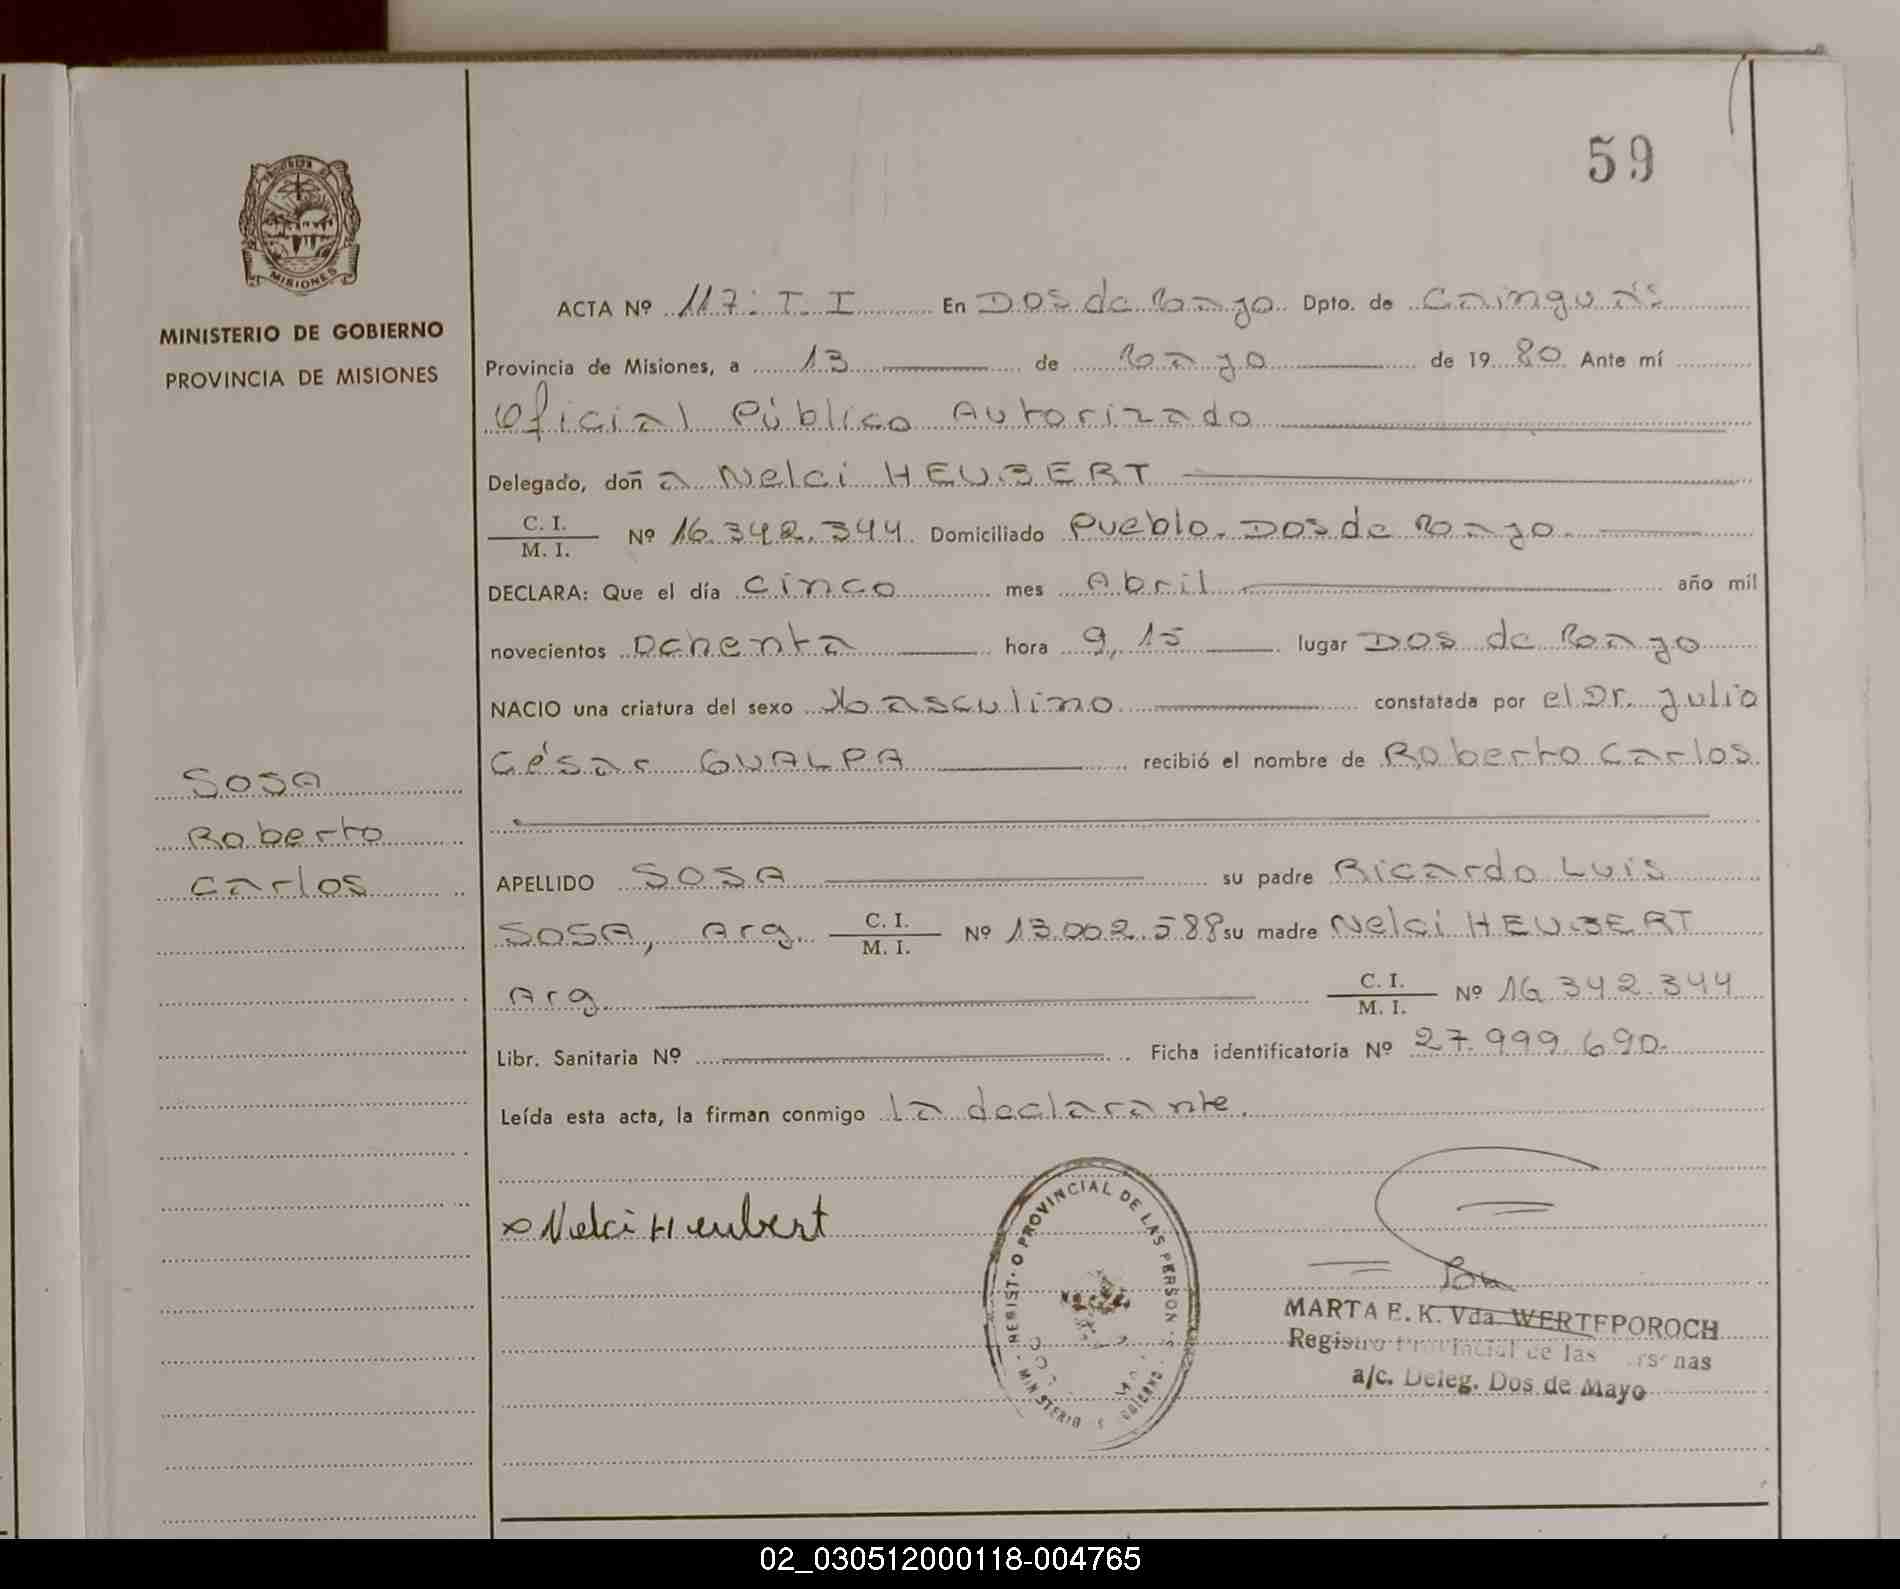 59
PROVINCIA DE
MISIONES
MINISTERIO DE GOBIERNO
PROVINCIA DE MISIONES
ACTA Nº 117: T. I En Dos de Mayo Dpto. de Cainguás
Provincia de Misiones, a 13 de Mayo de 1980 Ante mí
Oficial Público Autorizado
Delegado, doña Nelci HEUBERT
C. I.
M. I. Nº 16.342.344 Domiciliado Pueblo. Dos de Mayo.
DECLARA: Que el día Cinco mes Abril año mil
novecientos Ochenta hora 9,15 lugar Dos de Mayo
NACIO una criatura del sexo Masculino constatada por el Dr. Julio
César GUALPA recibió el nombre de Roberto Carlos
SOSA
Roberto
Carlos
APELLIDO SOSA su padre Ricardo Luis
SOSA, Arg. C. I.
M. I. Nº 13.002.588 su madre Nelci HEUBERT
Arg. C. I.
M. I. Nº 16.342.344
Libr. Sanitaria Nº Ficha identificatoria Nº 27.999.690.
Leída esta acta, la firman conmigo la declarante.
x Nelci Heubert
PROVINCIAL DE LAS PERSON
MINISTERIO
MARTA E. K. Vda. WERTEPOROCH
Registro Provincial de las
a/c. Deleg. Dos de Mayo
02_030512000118-004765